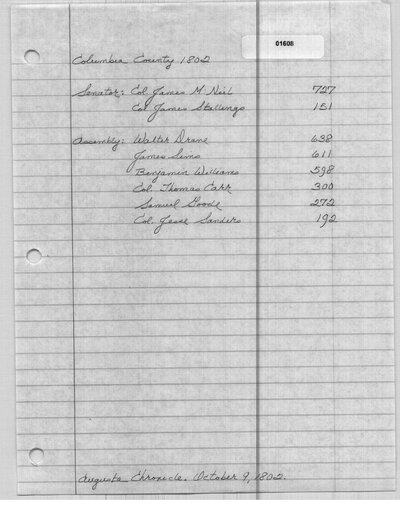 01608
Columbia County 1802
Senator: Col James M. Neil 727
Col James Stallings 151
Assembly: Walter Drane 638
James Sims 611
Benjamin Williams 598
Col. Thomas Carr 300
Samuel Goode 272
Col. Jesse Sanders 192
Augusta Chronicle. October 9, 1802.